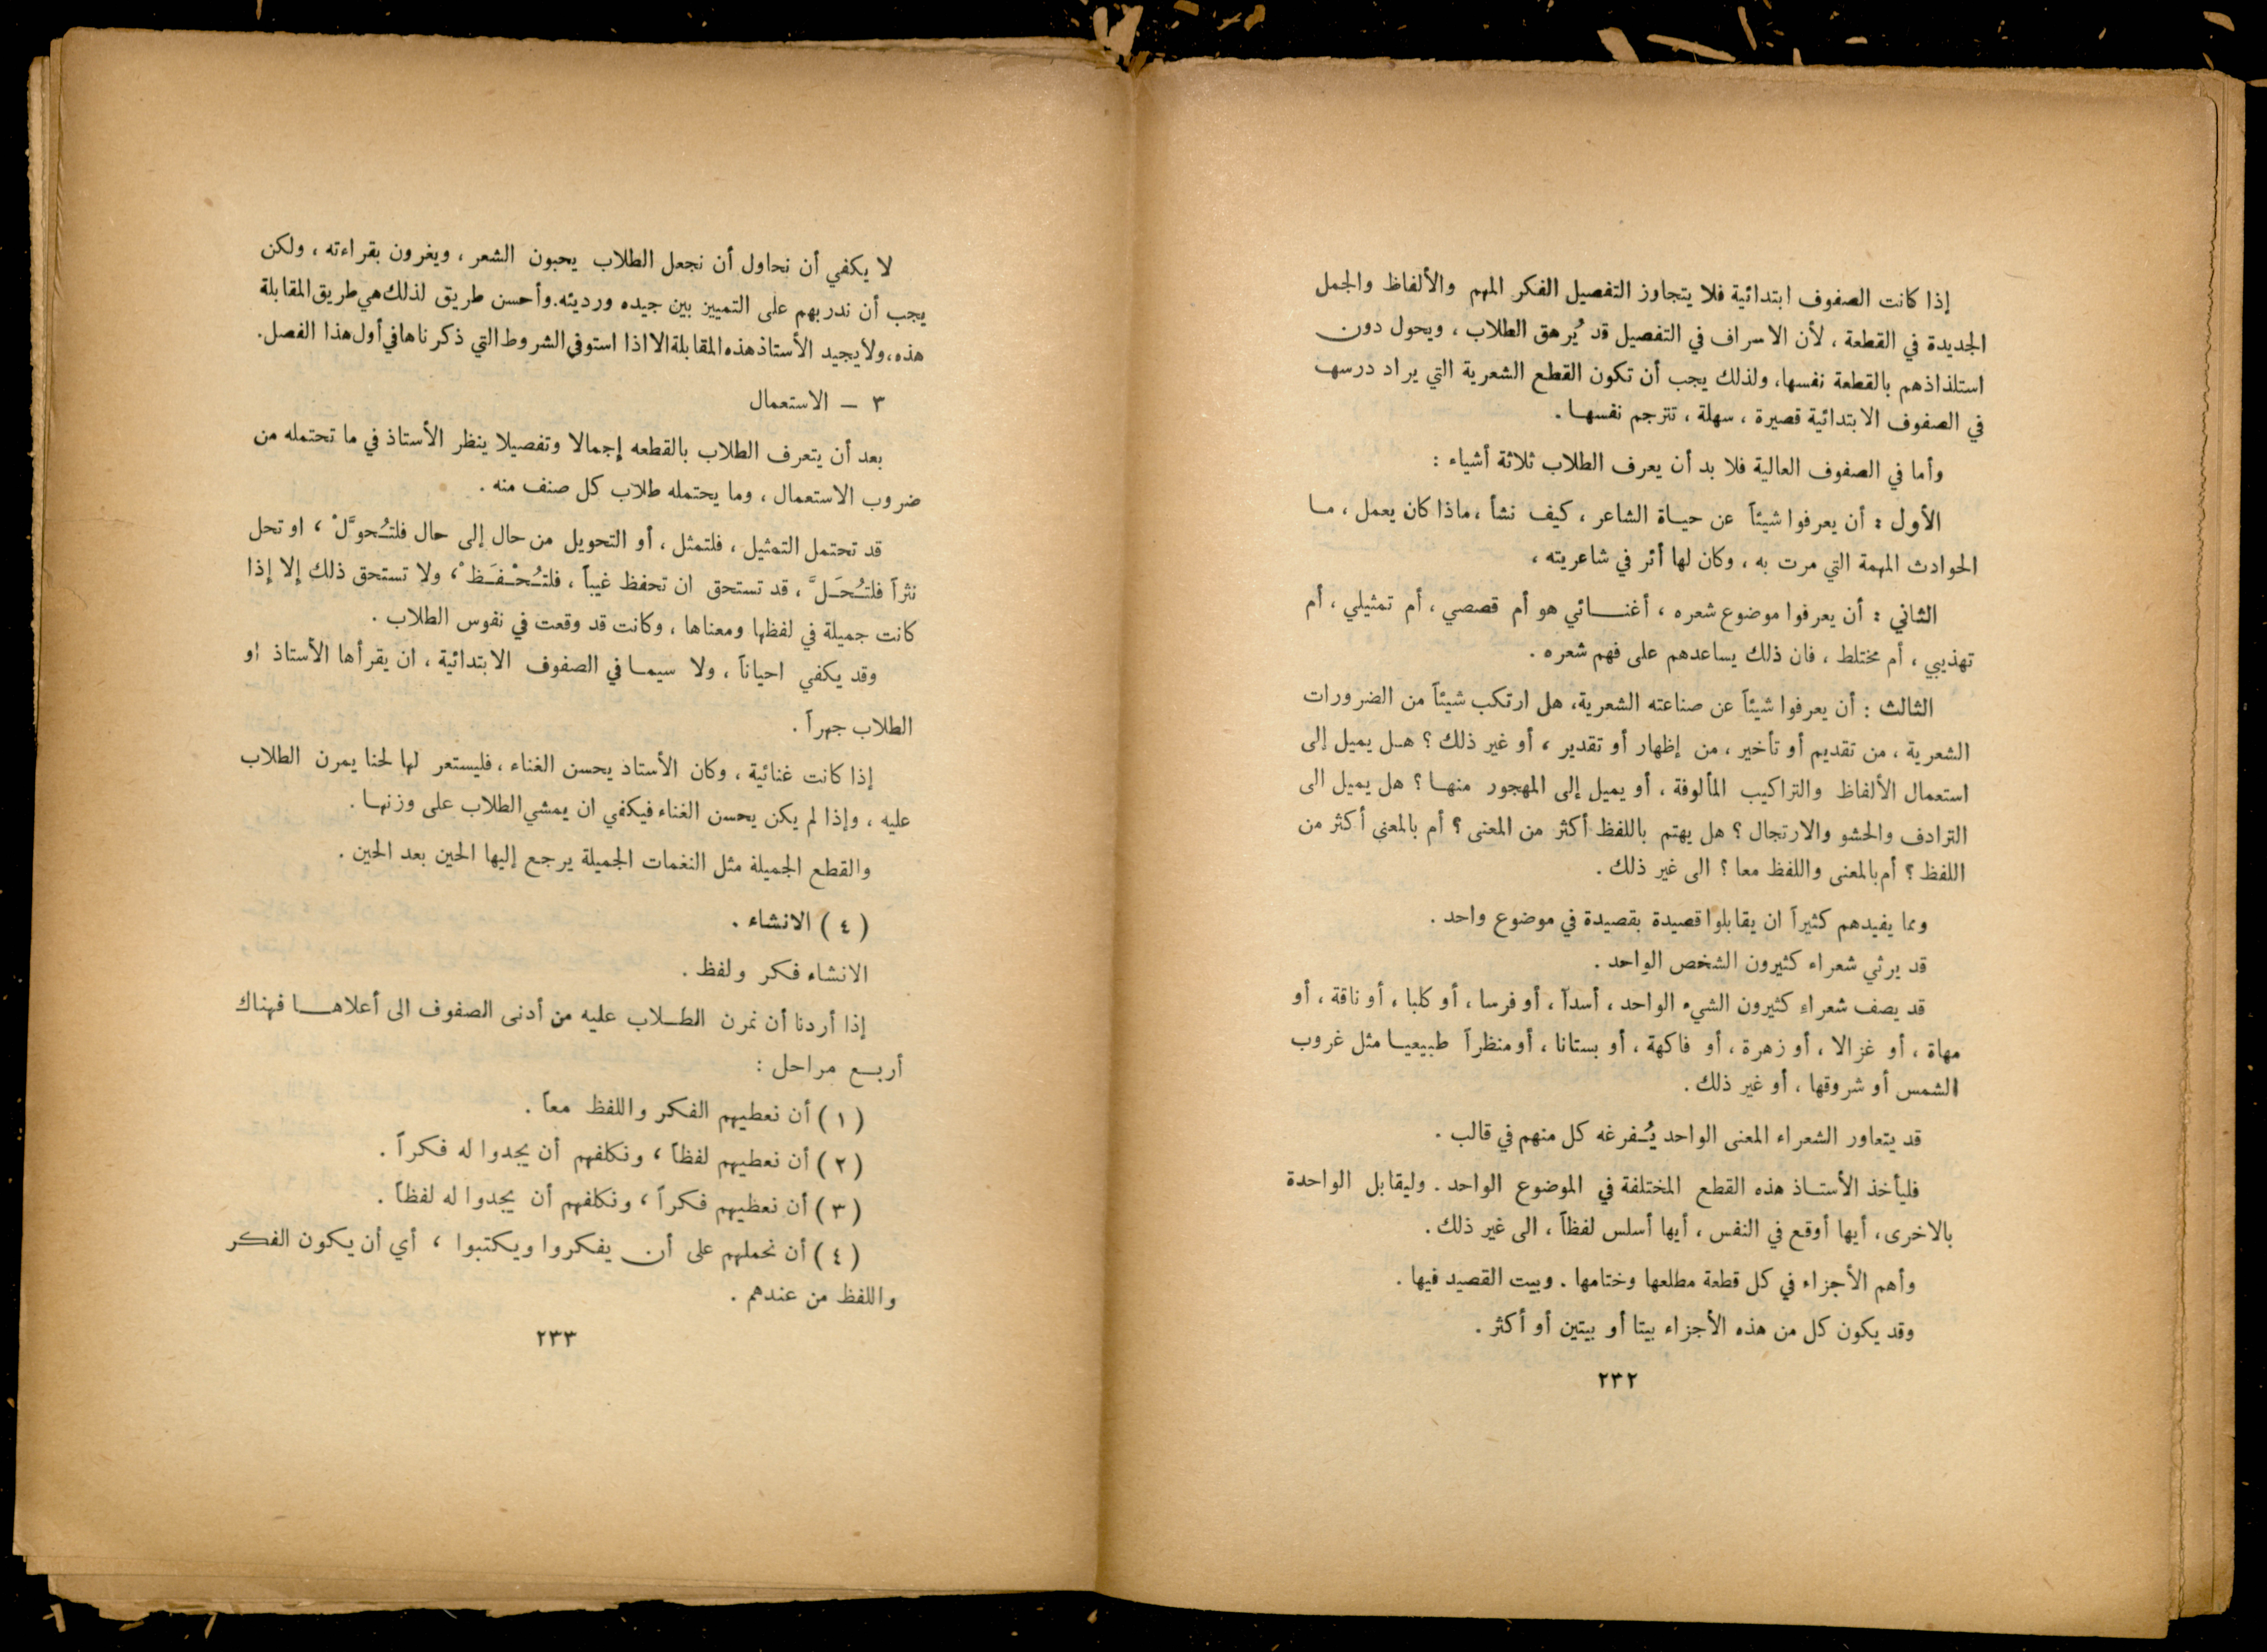 إذا كانت الصفوف ابتدائية فلا يتجاوز التفصيل الفكر المهم والألفاظ والجمل
الجديدة في القطعة ، لأن الاسراف في التفصيل قد يُرهق الطلاب ، ويحول دون
استلذاذهم بالقطعة نفسها، ولذلك يجب أن تكون القطع الشعرية التي يراد درسها
في الصفوف الابتدائية قصيرة ، سهلة ، تترجم نفسهـا .
وأما في الصفوف العالية فلا بد أن يعرف الطلاب ثلاثة أشياء :
الأول : أن يعرفوا شيئاً عن حيـاة الشاعر ، كيف نشأ ، ماذا كان يعمل ، مـا
الحوادث المهمة التي مرت به ، وكان لها أثر في شاعريته ،
الثاني : أن يعرفوا موضوع شعره ، أغنـــائي هو أم قصصي ، أم تمثيلي ، أم
تهذيبي ، أم مختلط ، فان ذلك يساعدهم على فهم شعره .
الثالث : أن يعرفوا شيئاً عن صناعته الشعرية، هل ارتكب شيئاً من الضرورات
الشعرية ، من تقديم أو تأخير ، من إظهار أو تقدير ، أو غير ذلك ؟ هـل يميل إلى
استعمال الألفاظ والتراكيب المألوفة ، أو يميل إلى المهجور منهـا ؟ هل يميل الى
الترادف والحشو والارتجال ؟ هل يهتم باللفظ أكثر من المعنى ؟ أم بالمعنى أكثر من
اللفظ ؟ أم بالمعنى واللفظ معا ؟ الى غير ذلك .
ومما يفيدهم كثيراً ان يقابلوا قصيدة بقصيدة في موضوع واحد .
قد يرثي شعراء كثيرون الشخص الواحد .
قد يصف شعراء كثيرون الشيء الواحد ، أسداً ، أو فرسا ، أو كلبا ، أو ناقة ، أو
مهاة ، أو غزالا ، أو زهرة ، أو فاكهة ، أو بستانا ، أو منظراً طبيعيـا مثل غروب
الشمس أو شروقها ، أو غير ذلك .
قد يتعاور الشعراء المعنى الواحد يُـفرغه كل منهم في قالب .
فليأخذ الأستـاذ هذه القطع المختلفة في الموضوع الواحد . وليقابل الواحدة
بالاخرى، أيها أوقع في النفس ، أيها أسلس لفظاً ، الى غير ذلك .
وأهم الأجزاء في كل قطعة مطلعها وختامها . وبيت القصيد فيها .
وقد يكون كل من هذه الأجزاء بيتا أو بيتين أو أكثر .
٢٣٢
لا يكفي أن نحاول أن نجعل الطلاب يحبون الشعر ، ويغرون بقراءته ، ولكن
يجب أن ندربهم على التمييز بين جيده ورديئه. وأحسن طريق لذلك هي طريق المقابلة
هذه، ولا يجيد الأستاذ هذه المقابلة الا اذا استوفى الشروط التي ذكرناها في أول هذا الفصل .
٣ – الاستعمال
بعد أن يتعرف الطلاب بالقطعه إجمالا وتفصيلا ينظر الأستاذ في ما تحتمله من
ضروب الاستعمال ، وما يحتمله طلاب كل صنف منه .
قد تحتمل التمثيل ، فلتمثل ، أو التحويل من حال إلى حال فلتُـحوَّلْ ، او تحل
نثراً فلتُـحَـلَّ ، قد تستحق ان تحفظ غيباً ، فلتُـحْـفَـظْ ، ولا تستحق ذلك إلا إذا
كانت جميلة في لفظها ومعناها ، وكانت قد وقعت في نفوس الطلاب .
وقد يكفي احياناً ، ولا سيمـا في الصفوف الابتدائية ، ان يقرأها الأستاذ او
الطلاب جهراً .
إذا كانت غنائية ، وكان الأستاذ يحسن الغناء ، فليستعر لها لحنا يمرن الطلاب
عليه ، وإذا لم يكن يحسن الغناء فيكفي ان يمشي الطلاب على وزنهـا .
والقطع الجميلة مثل النغمات الجميلة يرجع إليها الحين بعد الحين .
( ٤ ) الانشاء .
الانشاء فكر ولفظ .
إذا أردنا أن نمرن الطـلاب عليه من أدنى الصفوف الى أعلاهـــا فهناك
أربـع مراحل :
( ١ ) أن نعطيهم الفكر واللفظ معاً .
( ٢ ) أن نعطيهم لفظاً ، ونكلفهم أن يجدوا له فكراً .
( ٣ ) أن نعطيهم فكراً ، ونكلفهم أن يجدوا له لفظاً .
( ٤ ) أن نحملهم على أن يفكروا ويكتبوا ، أي أن يكون الفكر
واللفظ من عندهم .
٢٣٣